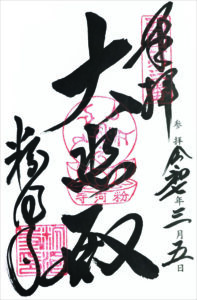 奉拝
参拝 令和 年三月五日
大悲殿
粉河寺
粉河寺